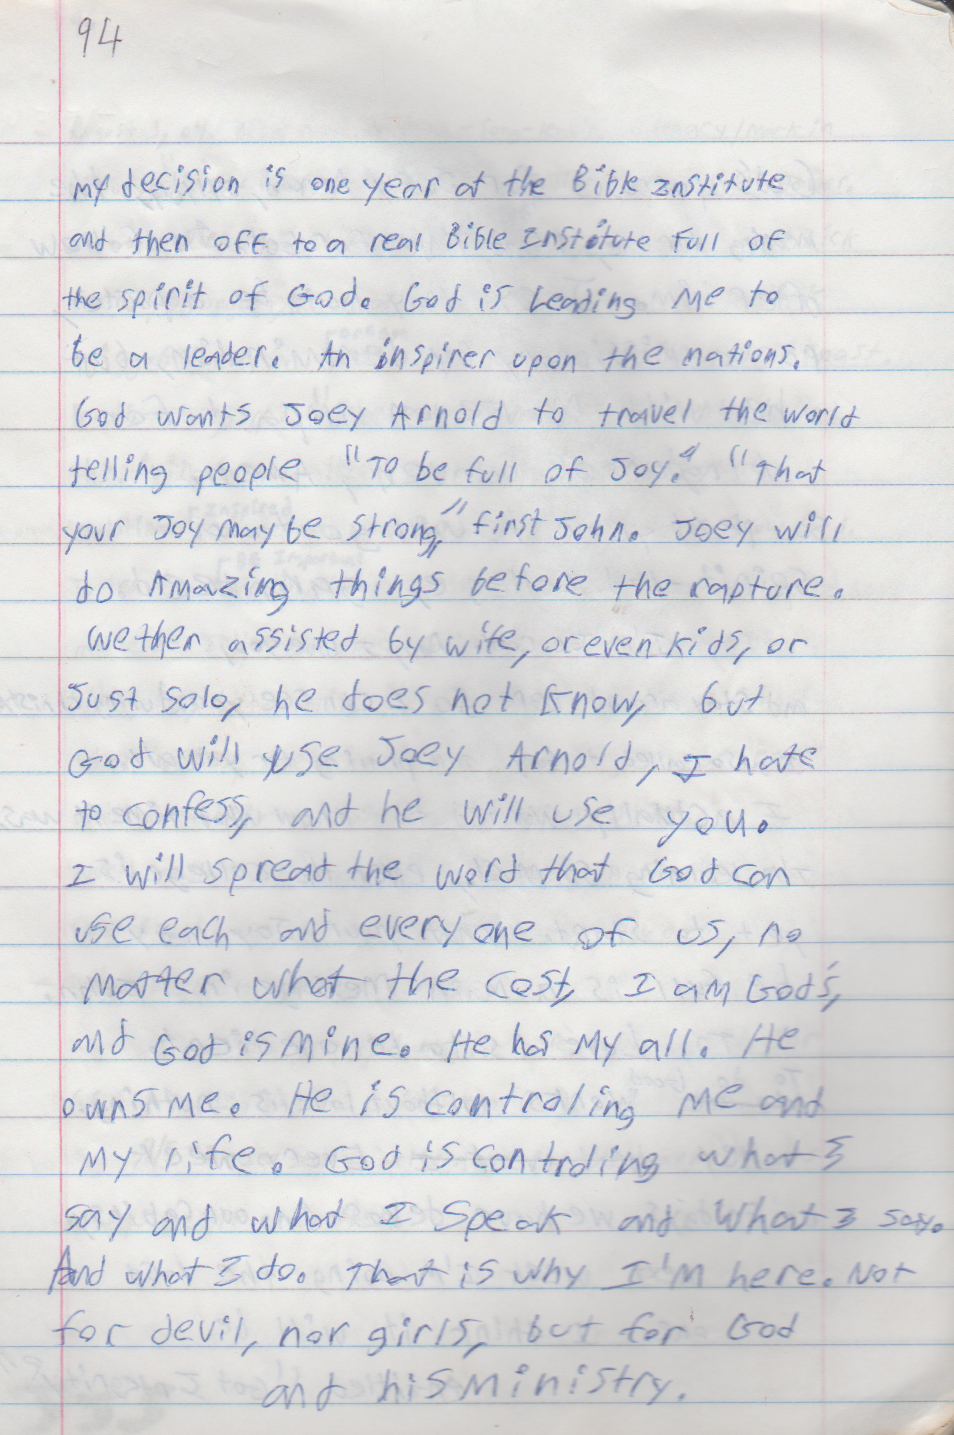 94
My decision is one year at the Bible Institute
and then off to a real Bible Institute full of
the spirit of God. God is Leading me to
be a leader. An inspirer upon the nations.
God wants Joey Arnold to travel the world
telling people "To be full of Joy." "That
your Joy may be strong," first John. Joey will
do Amazing things before the rapture.
wether assisted by wife, or even kids, or
Just solo, he does not know, but
God will use Joey Arnold, I hate
to confess, and he will use you.
I will spread the word that God can
use each and every one of us, no
matter what the cost, I am God's,
and God is mine. He has my all. He
owns me. He is controling me and
my life. God is controling what I
say and what I speak and what I say.
And what I do. That is why I'm here. Not
for devil, nor girls, but for God
and his ministry.